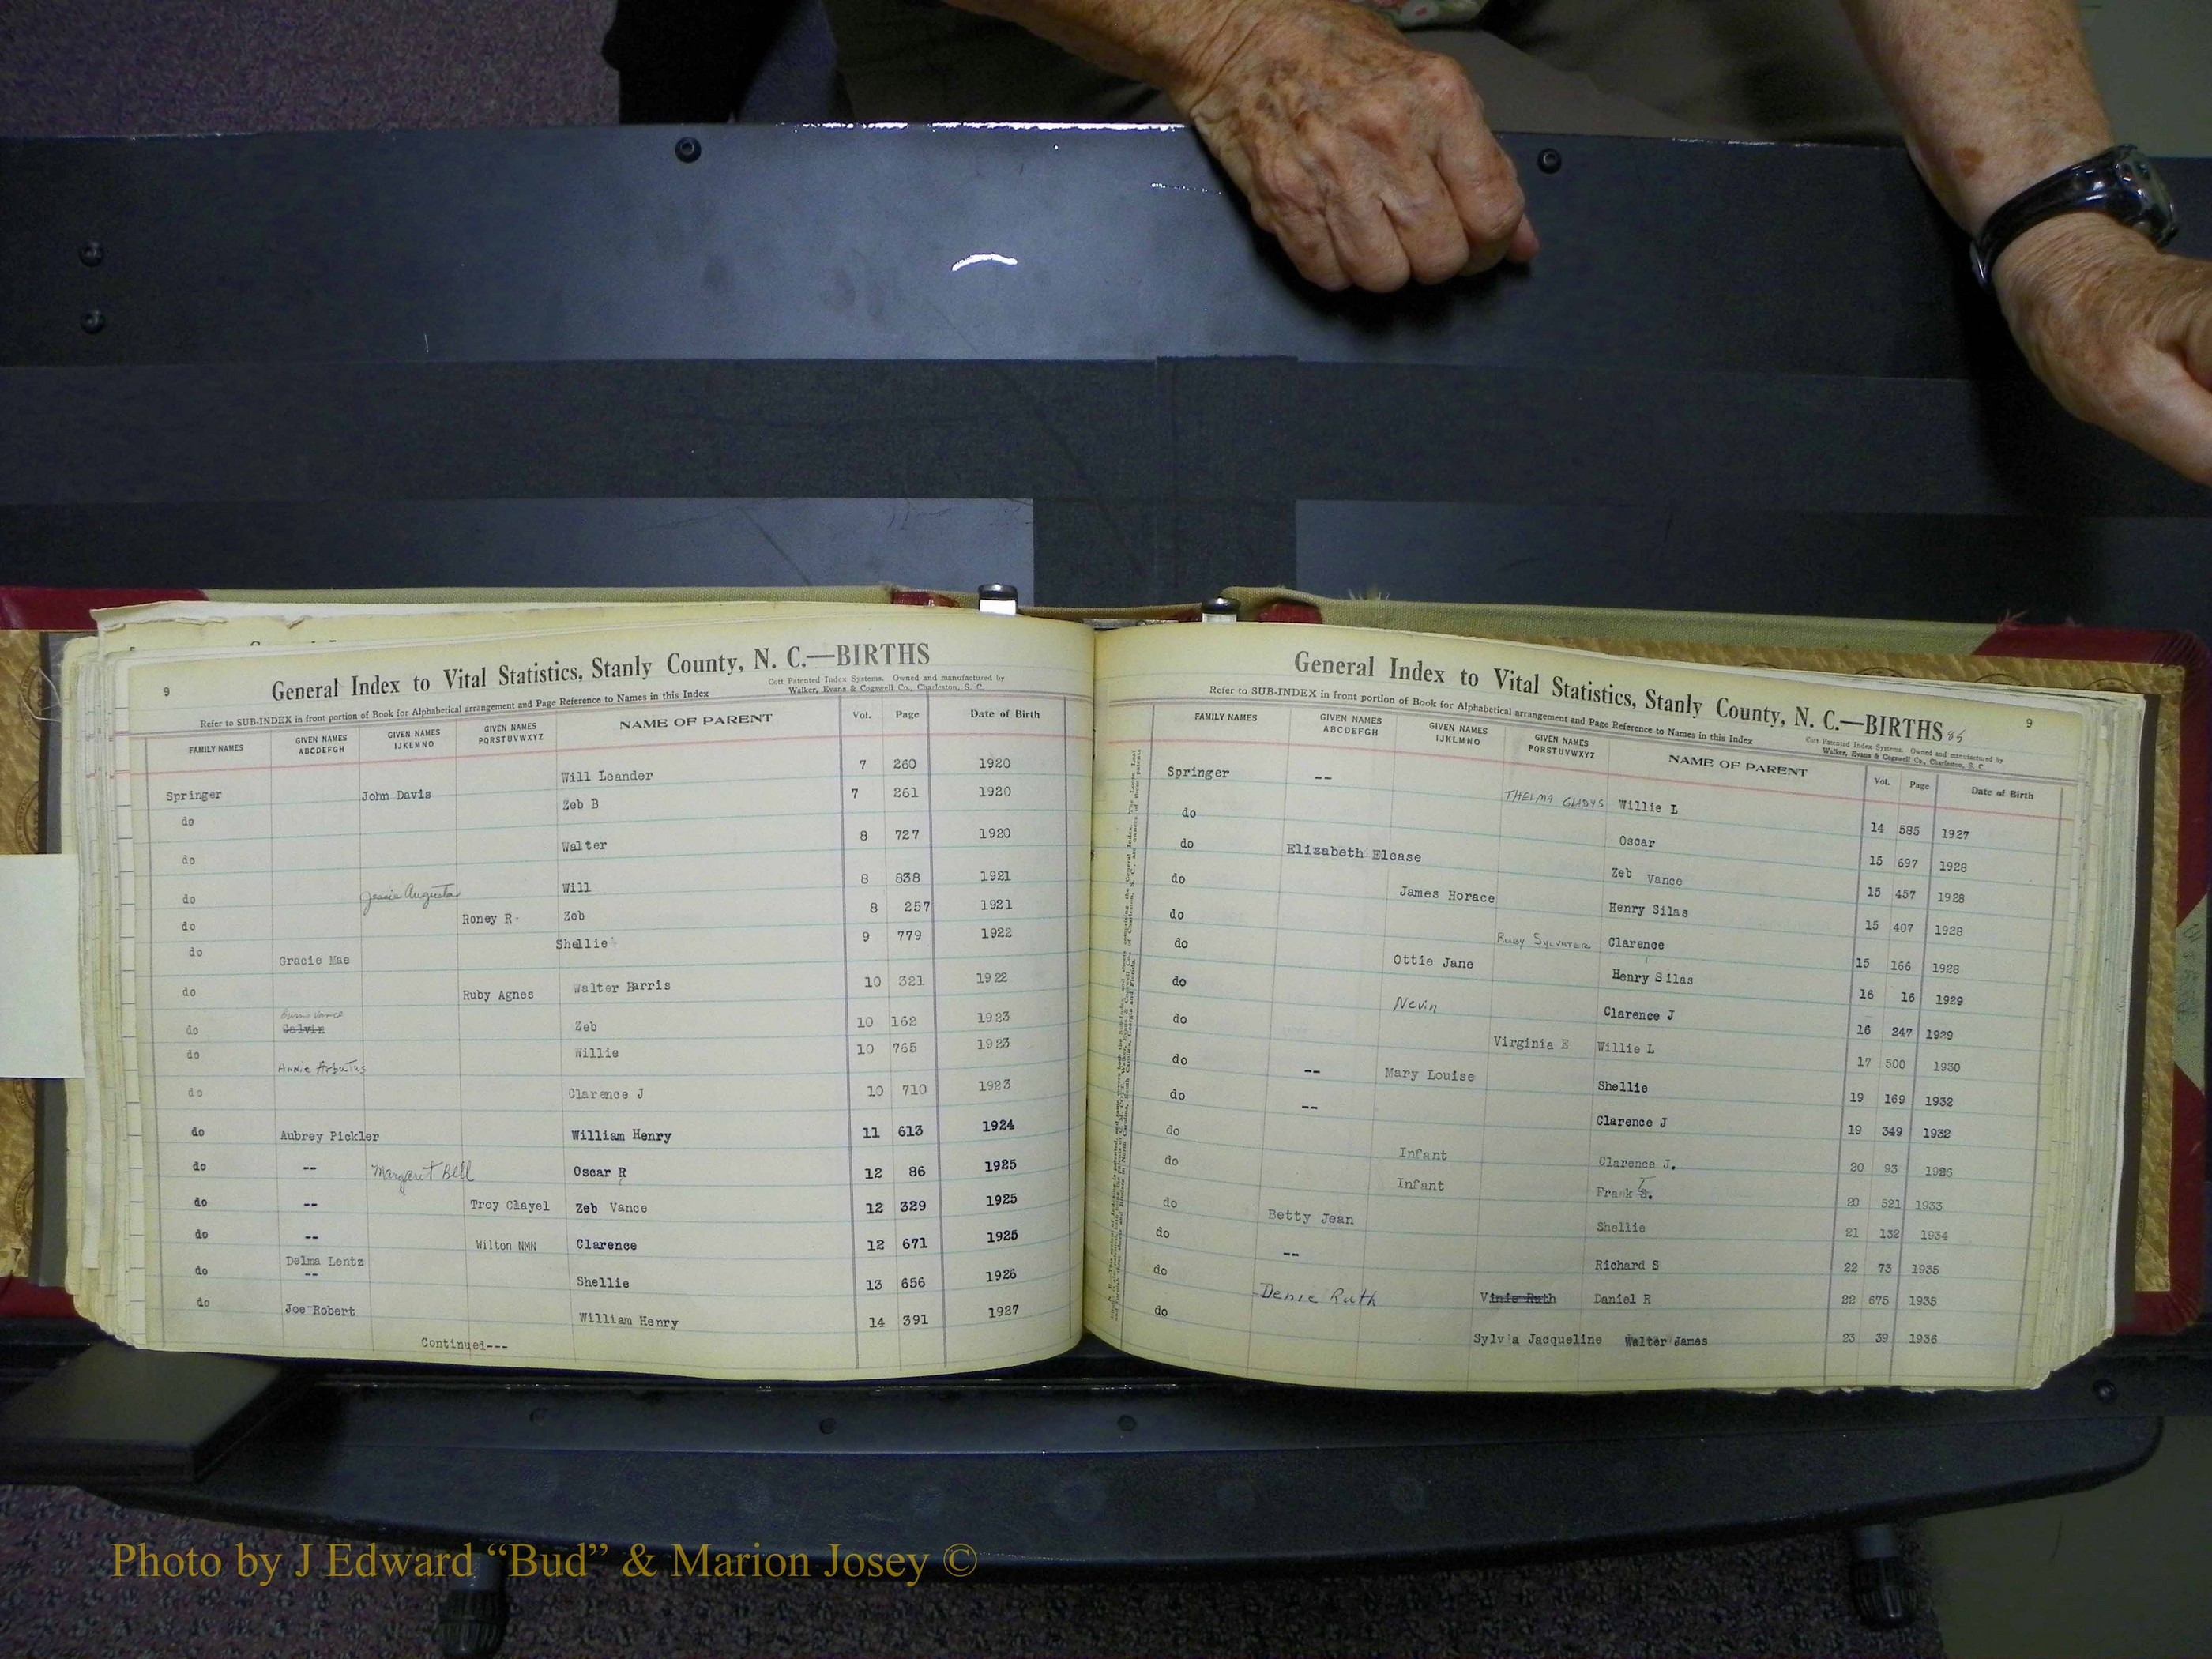 9
General Index to Vital Statistics, Stanly County, N. C.—BIRTHS
Cott Patented Index Systems. Owned and manufactured by
Refer to SUB-INDEX in front portion of Book for Alphabetical arrangement and Page Reference to Names in this Index
Walker, Evans & Cogswell Co., Charleston, S. C.
FAMILY NAMES GIVEN NAMES ABCDEFGH GIVEN NAMES IJKLMNO GIVEN NAMES PQRSTUVWXYZ NAME OF PARENT Vol. Page Date of Birth
Springer John Davis Will Leander 7 260 1920
do Zeb B 7 261 1920
do Walter 8 727 1920
do Jessie Augusta Will 8 838 1921
do Roney R- Zeb 8 257 1921
do Gracie Mae Shellie 9 779 1922
do Ruby Agnes Walter Harris 10 321 1922
do Burns Vance Calvin Zeb 10 162 1923
do Annie Arbutus Willie 10 765 1923
do Clarence J 10 710 1923
do Aubrey Pickler William Henry 11 613 1924
do -- Margaret Bell Oscar R 12 86 1925
do -- Troy Clayel Zeb Vance 12 329 1925
do -- Wilton NMN Clarence 12 671 1925
do Delma Lentz -- Shellie 13 656 1926
do Joe Robert William Henry 14 391 1927
Continued---
General Index to Vital Statistics, Stanly County, N. C.—BIRTHS 85
9
Refer to SUB-INDEX in front portion of Book for Alphabetical arrangement and Page Reference to Names in this Index
Cott Patented Index Systems. Owned and manufactured by
Walker, Evans & Cogswell Co., Charleston, S. C.
FAMILY NAMES GIVEN NAMES ABCDEFGH GIVEN NAMES IJKLMNO GIVEN NAMES PQRSTUVWXYZ NAME OF PARENT Vol. Page Date of Birth
Springer -- THELMA GLADYS Willie L 14 585 1927
do Oscar 15 697 1928
do Elizabeth Elease Zeb Vance 15 457 1928
do James Horace Henry Silas 15 407 1928
do Ruby Sylvater Clarence 15 166 1928
do Ottie Jane Henry Silas 16 16 1929
do Nevin Clarence J 16 247 1929
do Virginia E Willie L 17 500 1930
do -- Mary Louise Shellie 19 169 1932
do -- Clarence J 19 349 1932
do Infant Clarence J. 20 93
do Infant Frank S. 20 521 1933
do Betty Jean Shellie 21 132 1934
do -- Richard S 22 73 1935
do Dense Ruth Vinie Ruth Daniel R 22 675 1935
do Sylvia Jacqueline Walter James 23 39 1936
Photo by J Edward “Bud” & Marion Josey ©